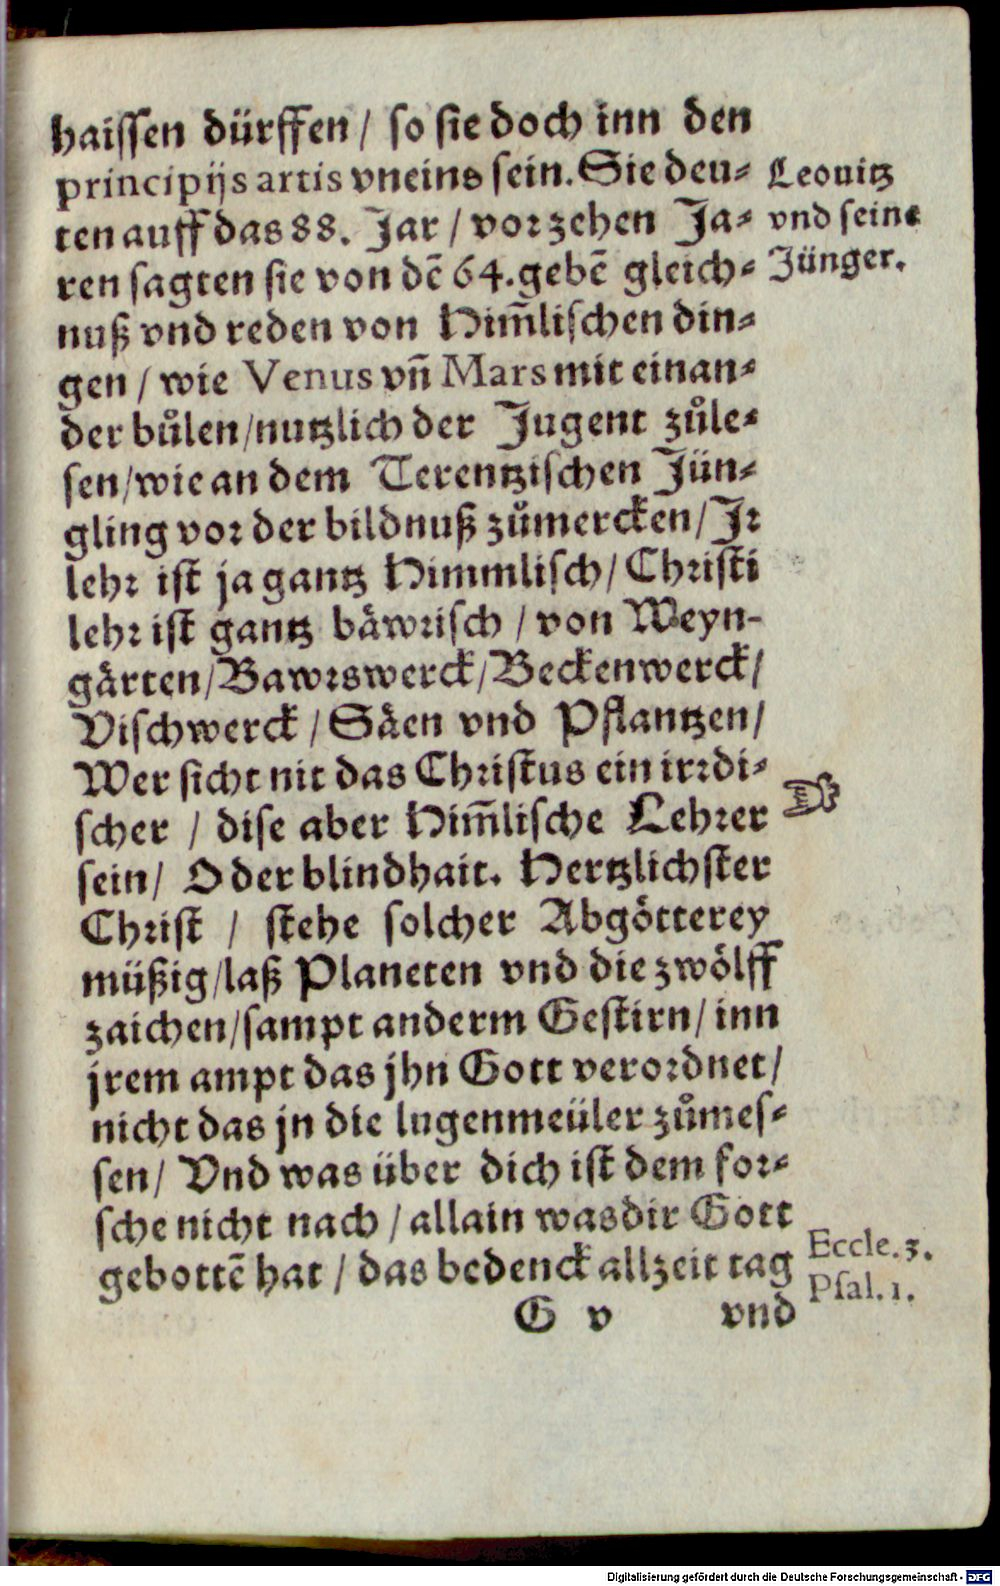 haissen dürffen / so sie doch inn den
principijs artis vneins sein. Sie deu⸗
ten auff das 88. Jar / vor zehen Ja⸗
ren sagten sie von dē 64. gebē gleich⸗
nuß vnd reden von Him̄lischen din⸗
gen / wie Venus vn̄ Mars mit einan⸗
der bůlen / nutzlich der Jugent zůle⸗
sen / wie an dem Terentzischen Jün⸗
gling vor der bildnuß zůmercken / Jr
lehr ist ja gantz Himmlisch / Christi
lehr ist gantz bäwrisch / von Weyn-
gärten / Bawrswerck / Beckenwerck /
Vischwerck / Säen vnd Pflantzen /
Wer sicht nit das Christus ein irrdi⸗
scher / dise aber Him̄lische Lehrer
sein / O der blindhait. Hertzlichster
Christ / stehe solcher Abgötterey
müßig / laß Planeten vnd die zwölff
zaichen / sampt anderm Gestirn / inn
jrem ampt das jhn Gott verordnet /
nicht das jn die lugenmeüler zůmes⸗
sen / Vnd was über dich ist dem for⸗
sche nicht nach / allain was dir Gott
gebottē hat / das bedenck allzeit tag
G v vnd
Leouitz
vnd seine
Jünger.
☞
Eccle. 3.
Psal. 1.
Digitalisierung gefördert durch die Deutsche Forschungsgemeinschaft - DFG